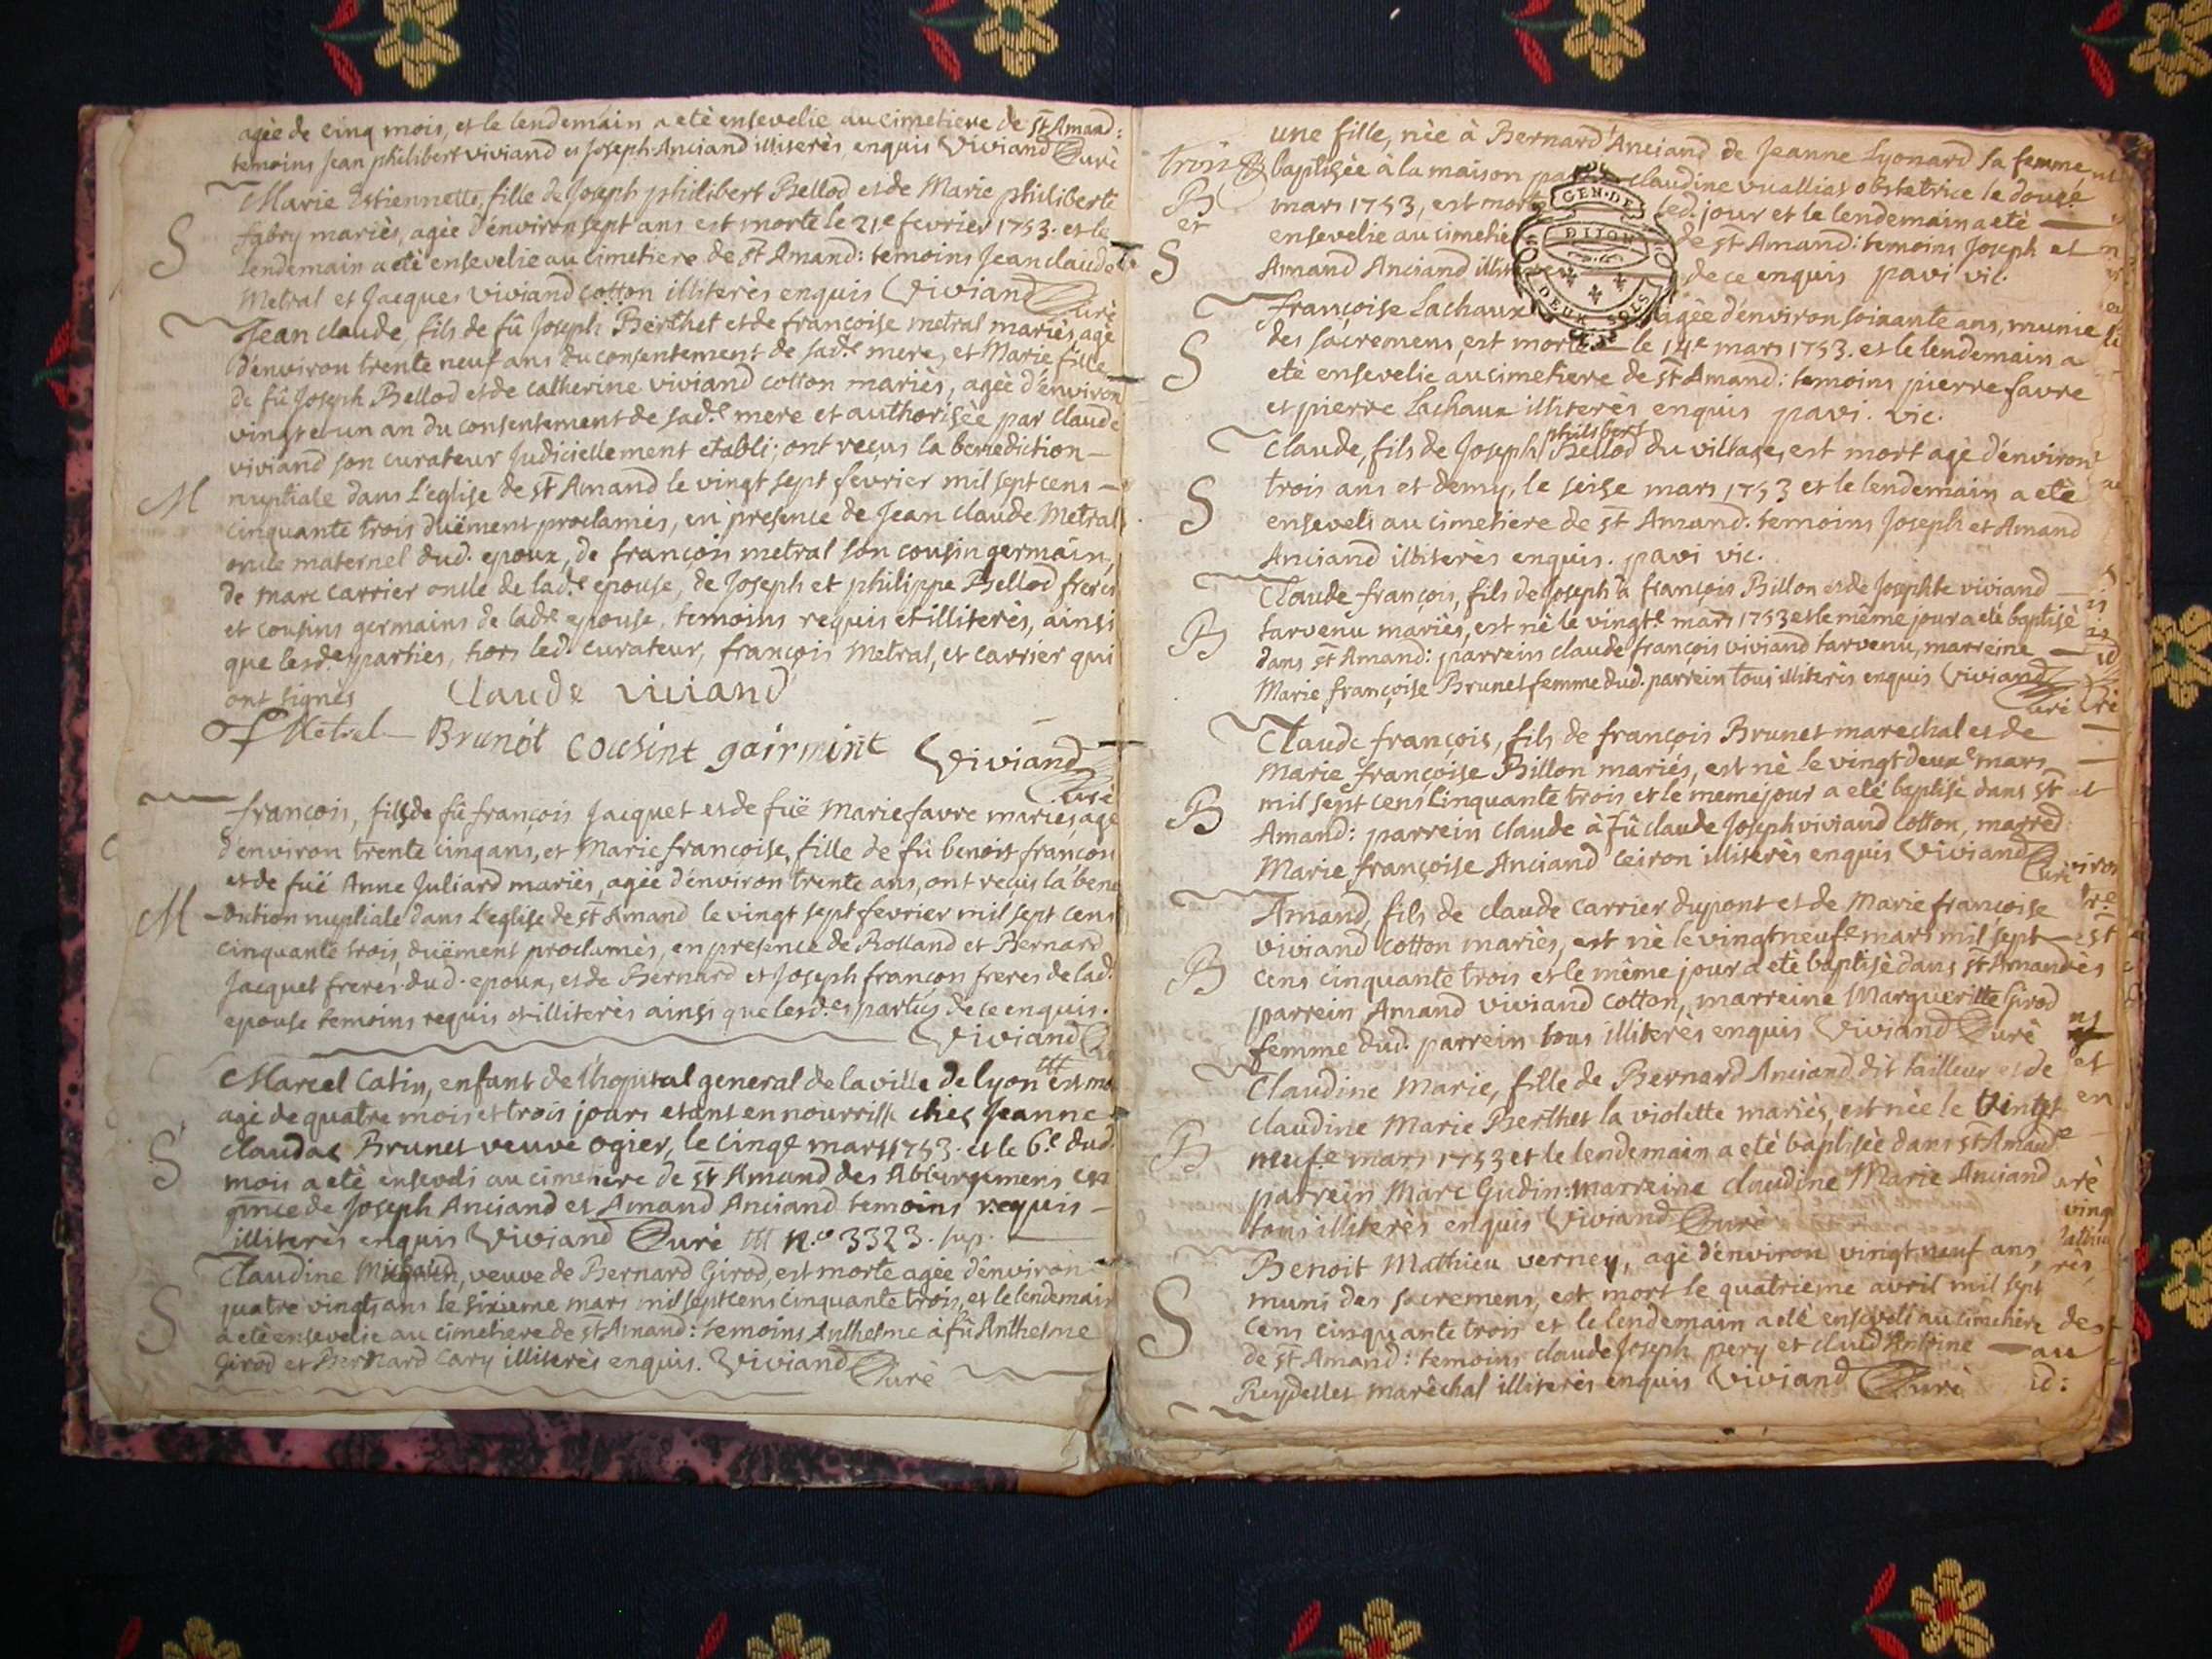 agèe de cinq mois, et le lendemain a etè ensevelie au cimetiere de st Amand:
temoins Jean philibert viviand et Joseph Anciand illiterès enquis Viviand Curè
Marie Estiennette, fille de Joseph philibert Bellod et de Marie philiberte
fabry mariès, agèe d'environ sept ans est morte le 21e fevrier 1753. et le
S
lendemain a etè ensevelie au cimetiere de st Amand: temoins Jean claude
Metral et Jacques viviand cotton illiterès enquis Viviand Curè
Jean claude, fils de fû Joseph Berthet et de françoise metral mariès, agè
d'environ trente neuf ans du consentement de sad.e mere, et Marie fille
de fû Joseph Bellod et de catherine viviand cotton mariès, agèe d'environ
vingt et un an du consentement de sad.e mere et authorisèe par claude
viviand son curateur Judiciellement etabli; ont reçus la benediction —
M
nuptiale dans L'eglise de st Amand le vingt sept fevrier mil sept cens —
cinquante trois duëment proclamès, en presence de Jean claude Metral
oncle maternel dud. epoux, de françois metral son cousin germain,
de marc carrier oncle de lad.e epouse, de Joseph et philippe Bellod freres
et cousins germains de lad.e epouse, temoins requis et illiterès, ainsi
que lesd.es parties, hors led. curateur, françois Metral, et carrier qui
ont signes Claude viviand
f Metral — Brunot cousint gairmint Viviand
Curè
françois, fils de fû françois Jacquet et de fuë Marie favre mariès, agè
d'environ trente cinq ans, et Marie francoise, fille de fû benoit françon
et de fuë Anne Juliard mariès, agèe d'environ trente ans, ont reçus la bene
M
-diction nuptiale dans L'eglise de st Amand le vingt sept fevrier mil sept cens
cinquante trois, duëment proclamès, en presence de Rolland et Bernard
Jacquet freres dud. epoux, et de Bernard et Joseph françon freres de lad.
epouse temoins requis et illiterès ainsi que lesd.es parties de ce enquis.
Viviand
Marcel Catin, enfant de l'hopital general de la ville de lyon est mo
agè de quatre mois et trois jours etant en nourrisse chés Jeanne
claudas Brunet veuve ogier, le cinqe mars 1753. et le 6.e dud.
S
mois a etè enseveli au cimetiere de st Amand des Abbergemens en
de Joseph Anciand et Amand Anciand temoins requis —
illiterès enquis Viviand Curè N.o 3323.
Claudine, veuve de Bernard Girod, est morte agèe d'environ
quatre vingts ans le sixieme mars mil sept cens cinquante trois, et le lendemain
S
a etè ensevelie au cimetiere de st Amand: temoins Anthelme à fû Anthelme
Girod et Bernard Cary illiterès enquis. Viviand Curè
une fille, nèe à Bernard Anciand de Jeanne Lyonard sa femme
baptisèe à la maison claudine vualliat obstetrice le douse
B
mars 1753, est morte led. jour et le lendemain a etè —
et
ensevelie au cimetie de st Amand: temoins Joseph et
S
Amand Anciand de ce enquis pavi vic.
GEN. DE
DIJON
DEUX SOLS
françoise Lachaux agèe d'environ soixante ans, munie
des sacremens, est morte le 14e mars 1753. et le lendemain a
S
etè ensevelie au cimetiere de st Amand: temoins pierre favre
et pierre Lachaux illiterès enquis pavi. vic.
philibert
Claude, fils de Joseph Bellod du village, est mort agè d'environ
trois ans et demy, le seise mars 1753 et le lendemain a etè
S
enseveli au cimetiere de st Amand: temoins Joseph et Amand
Anciand illiterès enquis. pavi vic.
Claude-françois, fils de Joseph à françois Billon et de Josephte viviand —
tarvenu mariès, est nè le vingt.e mars 1753 et le même jour a etè baptisè
B
dans st Amand: parrein claude françois viviand tarvenu, marreine —
Marie françoise Brunet femme dud. parrein tous illiterès enquis Viviand
Curè
Claude françois, fils de françois Brunet marechal et de
Marie françoise Billon mariès, est nè le vingt deuxe mars
B
mil sept cens cinquante trois et le meme jour a etè baptisè dans st
Amand: parrein claude à fû claude Joseph viviand cotton, marred
Marie françoise Anciand ceiron illiterès enquis Viviand Curè
Amand, fils de claude carrier dupont et de Marie francoise
viviand cotton mariès, est nè le vingt neufe mars mil sept —
B
cens cinquante trois et le même jour a etè baptisè dans st Amand
parrein Amand viviand cotton, marreine Margueritte Girod
femme dud. parrein tous illiterès enquis Viviand Curè
Claudine Marie, fille de Bernard Anciand dit tailleur et de
claudine Marie Berthet la violette mariès, est nèe le vingt
B
neuf.e mars 1753 et le lendemain a etè baptisèe dans st Amand
parrein Marc Gudin: marreine claudine Marie Anciand
tous illiterès enquis Viviand Curè
Benoit Mathieu verney, agè d'environ vingt neuf ans,
muni des sacremens, est mort le quatrieme avril mil sept
S
cens cinquante trois et le lendemain a etè enseveli au cimetiere
de st Amand: temoins claude Joseph pery et claud Antoine —
Reydellet marèchal illiterès enquis Viviand Curè